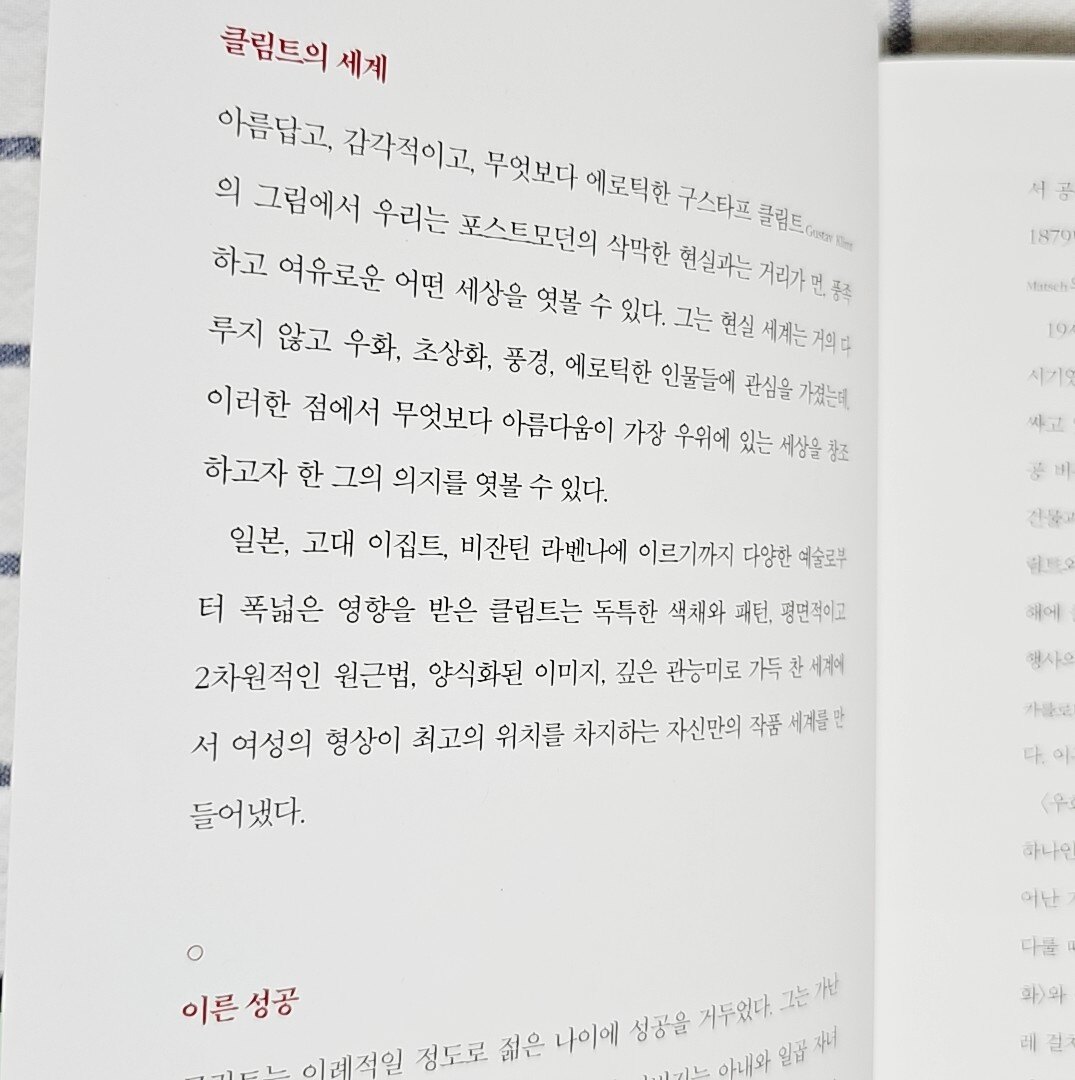 클림트의 세계
아름답고, 감각적이고, 무엇보다 에로틱한 구스타프 클림트Gustav Klimt
의 그림에서 우리는 포스트모던의 삭막한 현실과는 거리가 먼, 풍족
하고 여유로운 어떤 세상을 엿볼 수 있다. 그는 현실 세계는 거의 다
루지 않고 우화, 초상화, 풍경, 에로틱한 인물들에 관심을 가졌는데,
이러한 점에서 무엇보다 아름다움이 가장 우위에 있는 세상을 창조
하고자 한 그의 의지를 엿볼 수 있다.
일본, 고대 이집트, 비잔틴 라벤나에 이르기까지 다양한 예술로부
터 폭넓은 영향을 받은 클림트는 독특한 색채와 패턴, 평면적이고
2차원적인 원근법, 양식화된 이미지, 깊은 관능미로 가득 찬 세계에
서 여성의 형상이 최고의 위치를 차지하는 자신만의 작품 세계를 만
들어냈다.
이른 성공
이례적일 정도로 젊은 나이에 성공을 거두었다. 그는 가난
아내와 일곱 자녀
서 공
1879
Matsch
194
싸고
행사의
다. 이
하나인
어난
다룰
화〉와
레 걸쳐